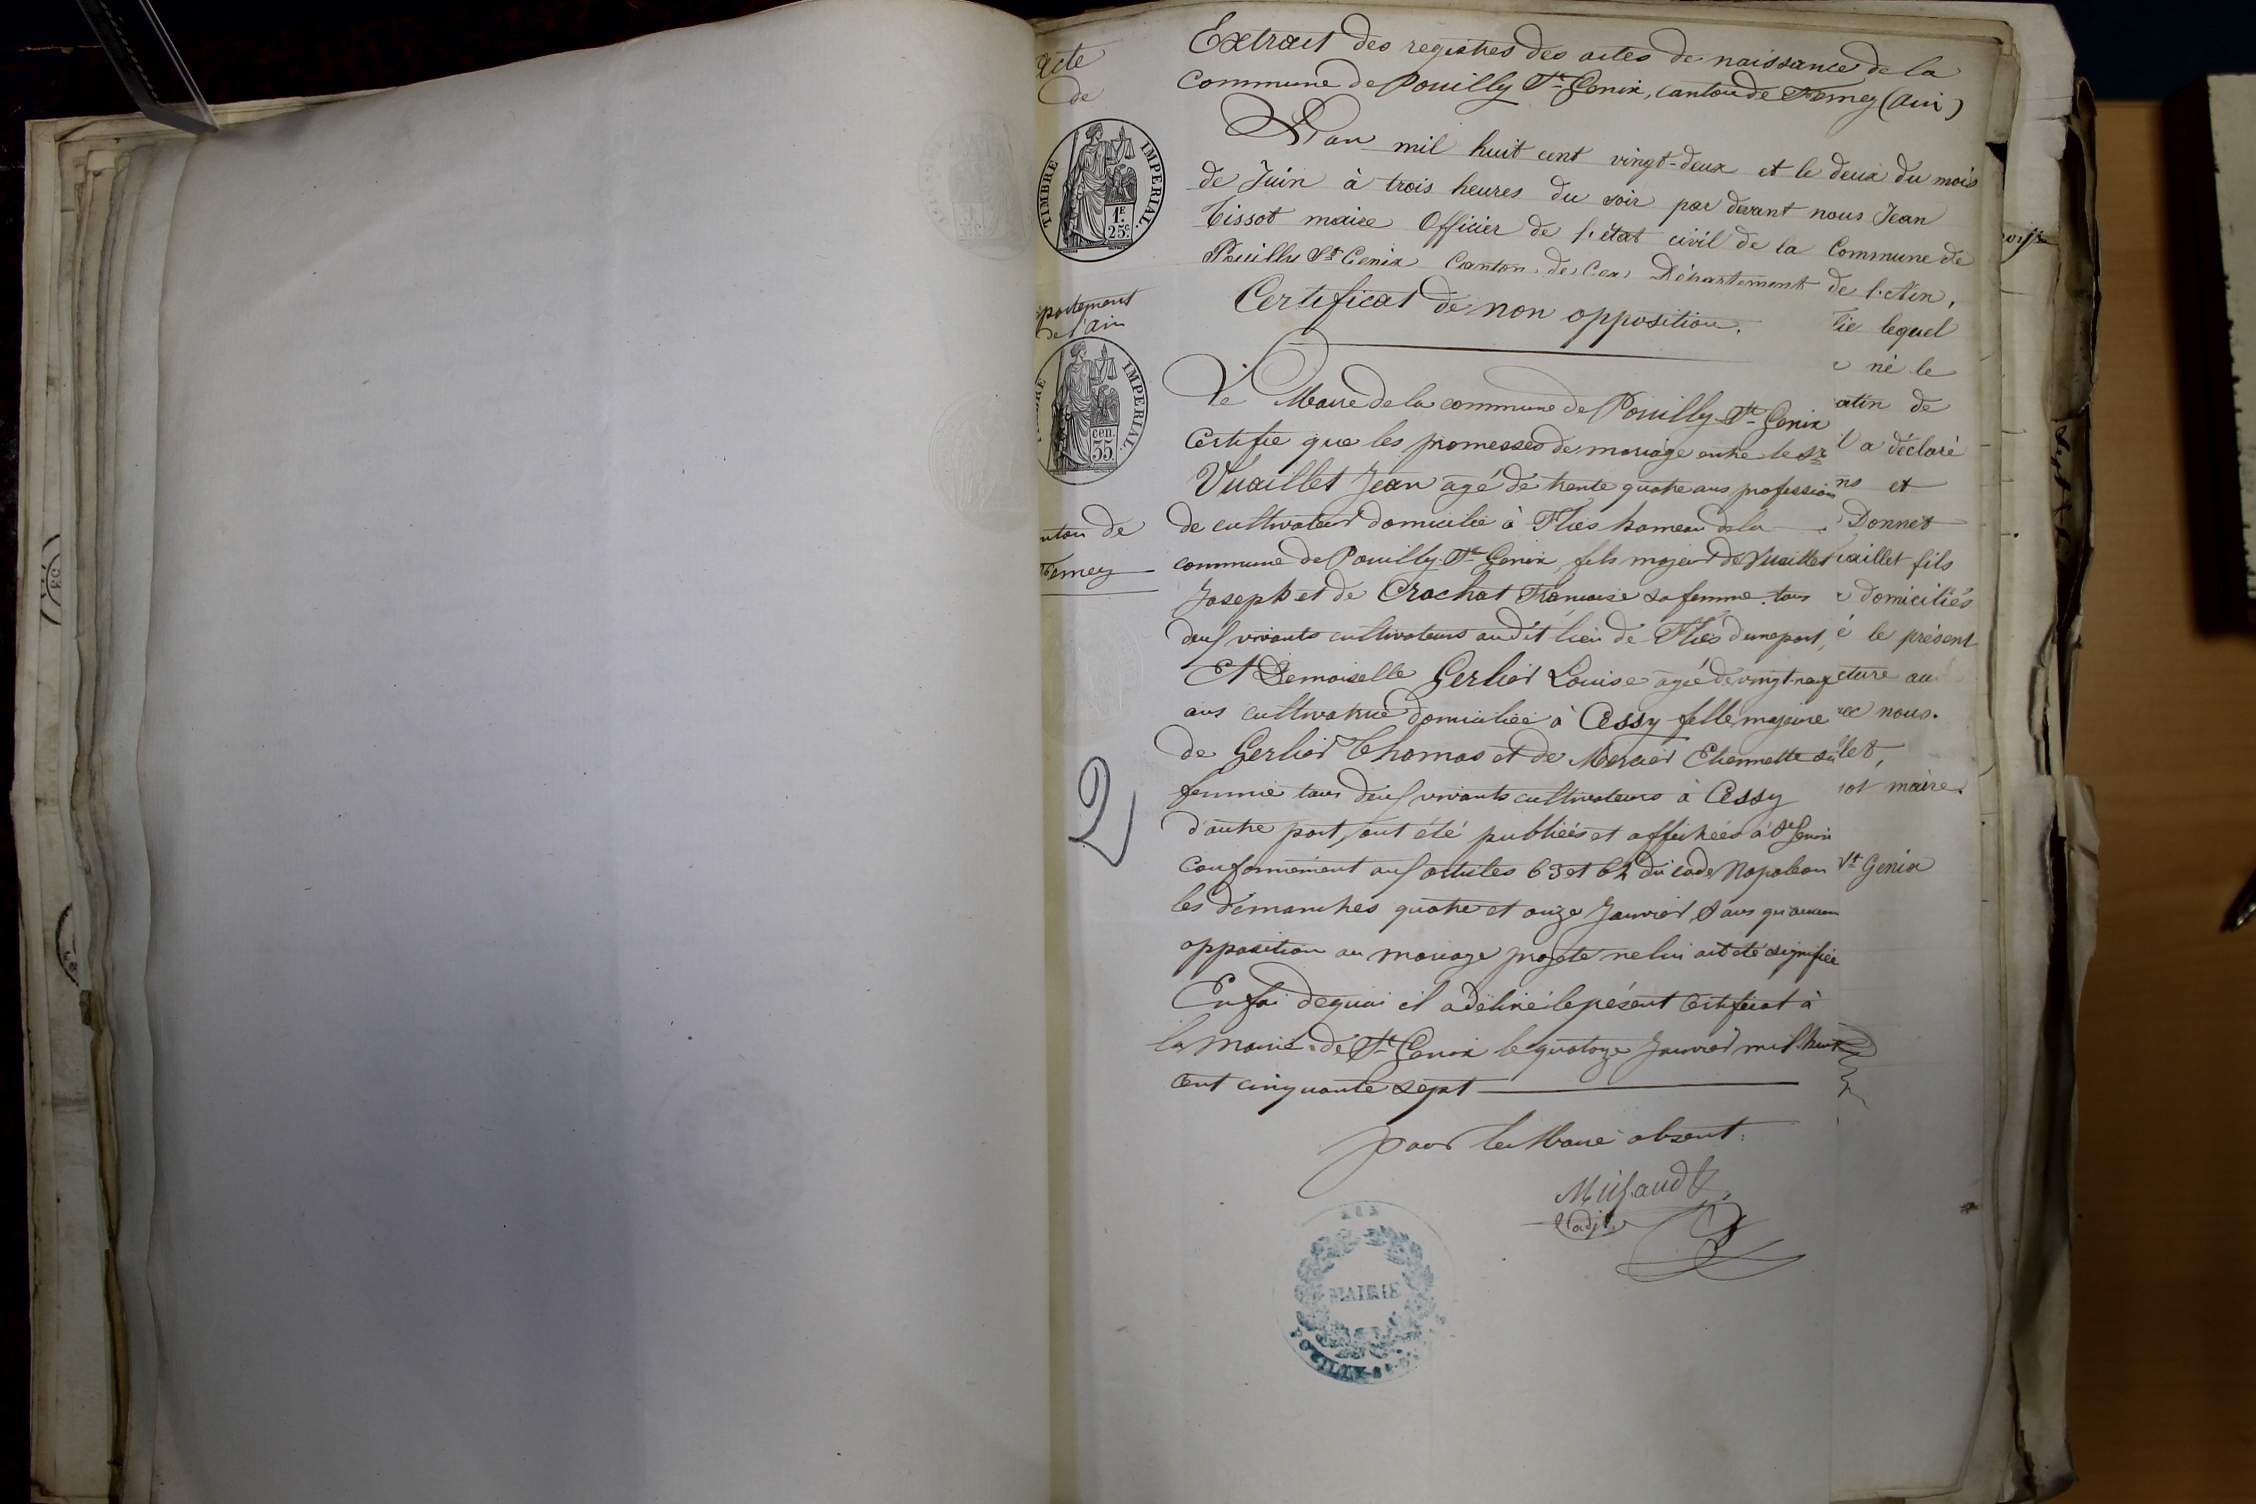 Acte
de
Extrait des registres des actes de naissance de la
Commune de Pouilly St. Genix, canton de Ferney (Ain)
L'an mil huit cent vingt-deux et le deux du mois
de Juin à trois heures du soir par devant nous Jean
Tissot maire Officier de l'état civil de la Commune de
Pouilly St. Genix Canton de Gex Département de l'Ain.
TIMBRE IMPERIAL.
1F 25c.
partement
de l'Ain
TIMBRE IMPERIAL.
cen. 35.
nton de
Ferney
2
Certificat de non opposition.
Le Maire de la commune de Pouilly St. Genix
Certifie que les promesses de mariage entre le Sr.
Vuaillet Jean agé de trente quatre ans profession
de cultivateur domicilié à Flies hameau de la
commune de Pouilly St. Genix, fils majeur de Vuaillet
Joseph et de Crochat Françoise sa femme tous
deux vivants cultivateurs audit lieu de Flies d'une part,
Et Demoiselle Gerlier Louise agée de vingt-neuf
ans cultivatrice domiciliée à Cessy fille majeure
de Gerlier Thomas et de Mercier Etiennette sa
femme tous deux vivants cultivateurs à Cessy
d'autre part, ont été publiées et affichées à St. Genix
Conformément aux articles 63 et 64 du code Napoléon
les dimanches quatre et onze Janvier, sans qu'aucune
opposition au mariage projeté ne lui ait été signifiée
En foi de quoi il a délivré le présent Certificat à
la Mairie de St. Genix le quatorze Janvier mil huit
cent cinquante sept
pour le Maire absent.
l'adjt.
MAIRIE
POUILLY
AIN
lequel
né le
de
a déclaré
ns et
Donnet
uaillet fils
domiciliés
é le présent
cture au
ec nous.
let,
sot maire.
St Genix